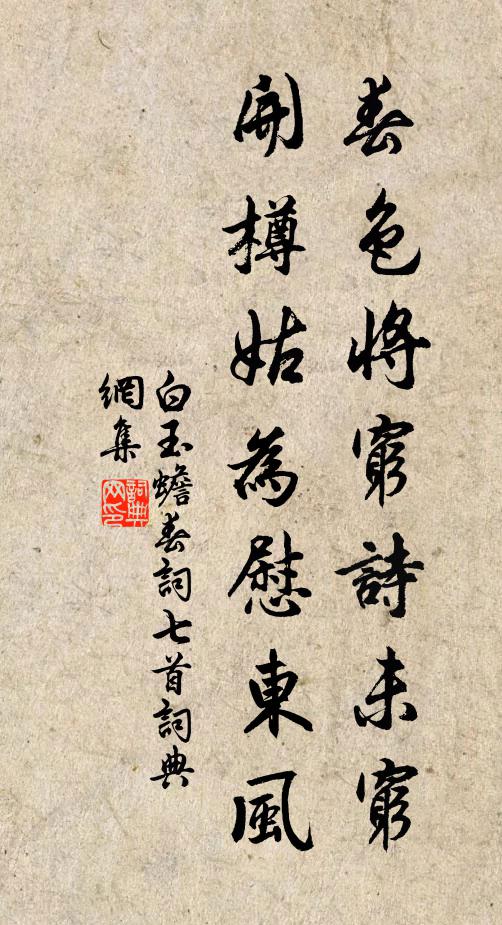 春色將窮詩未窮
開樽姑為慰東風
白玉蟾春詞七首詞典
網集
詞典
网印